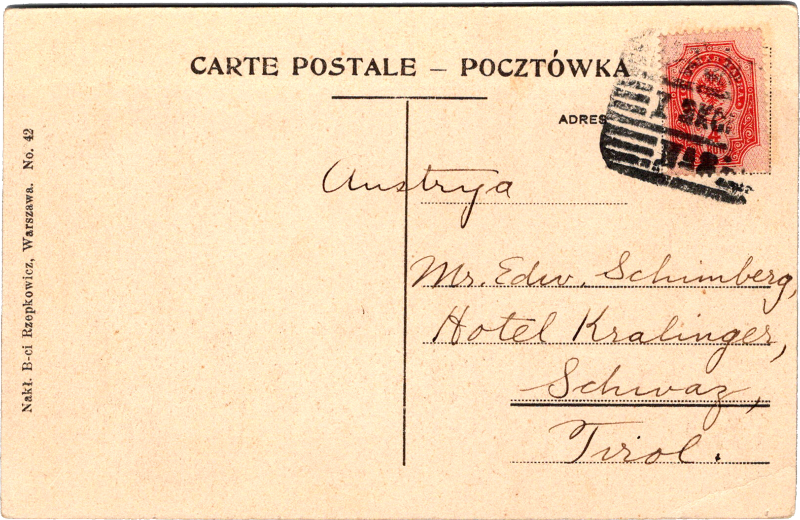 CARTE POSTALE – POCZTÓWKA
ADRES
Austrya
Mr. Edw. Schimberg,
Hotel Kralinger,
Schwaz,
Tirol.
Nakł. B-ci Rzepkowicz, Warszawa. No. 42